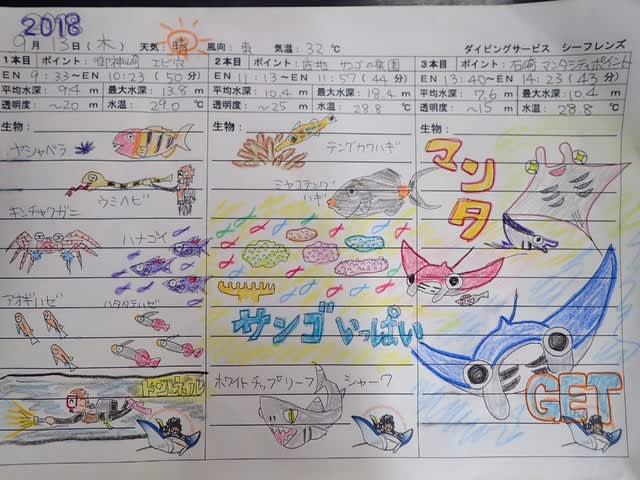 2018
9月13日(木) 天気:晴 風向:東 気温:32℃ ダイビングサービス シーフレンズ
1本目 ポイント:御神崎 エビ穴
EN 9:33〜EN 10:23(50分)
平均水深:9.4 m 最大水深:13.8 m
透明度:〜20 m 水温:29.0 ℃
生物:
ヤシャベラ
ウミヘビ
キンチャクガニ
ハナゴイ
アオギハゼ
ハタタテハゼ
トンネル
2本目 ポイント:底地 サンゴの楽園
EN 11:13〜EN 11:57(44分)
平均水深:10.4 m 最大水深:18.4 m
透明度:〜25 m 水温:28.8 ℃
生物:
テングカワハギ
ミヤコテングハギ
サンゴ いっぱい
ホワイトチップリーフ シャーク
3本目 ポイント:石崎 マンタシティポイント
EN 13:40〜EN 14:23(43分)
平均水深:7.6 m 最大水深:10.4 m
透明度:〜15 m 水温:28.8 ℃
生物:
マンタ
GET